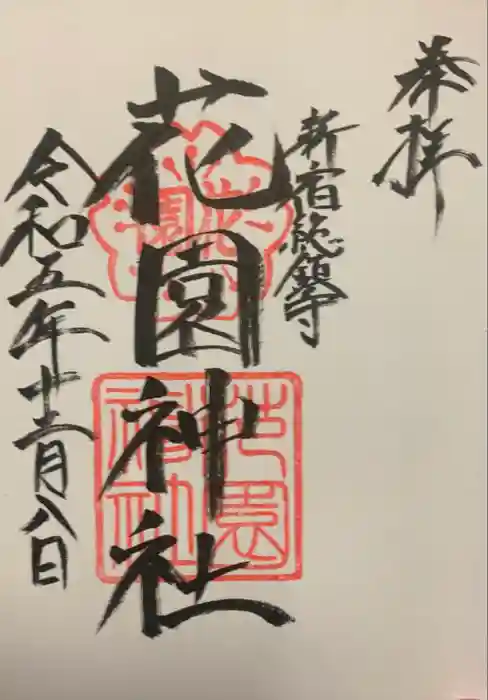 奉拝
新宿総鎮守
花園神社
令和五年十二月八日
花園神社